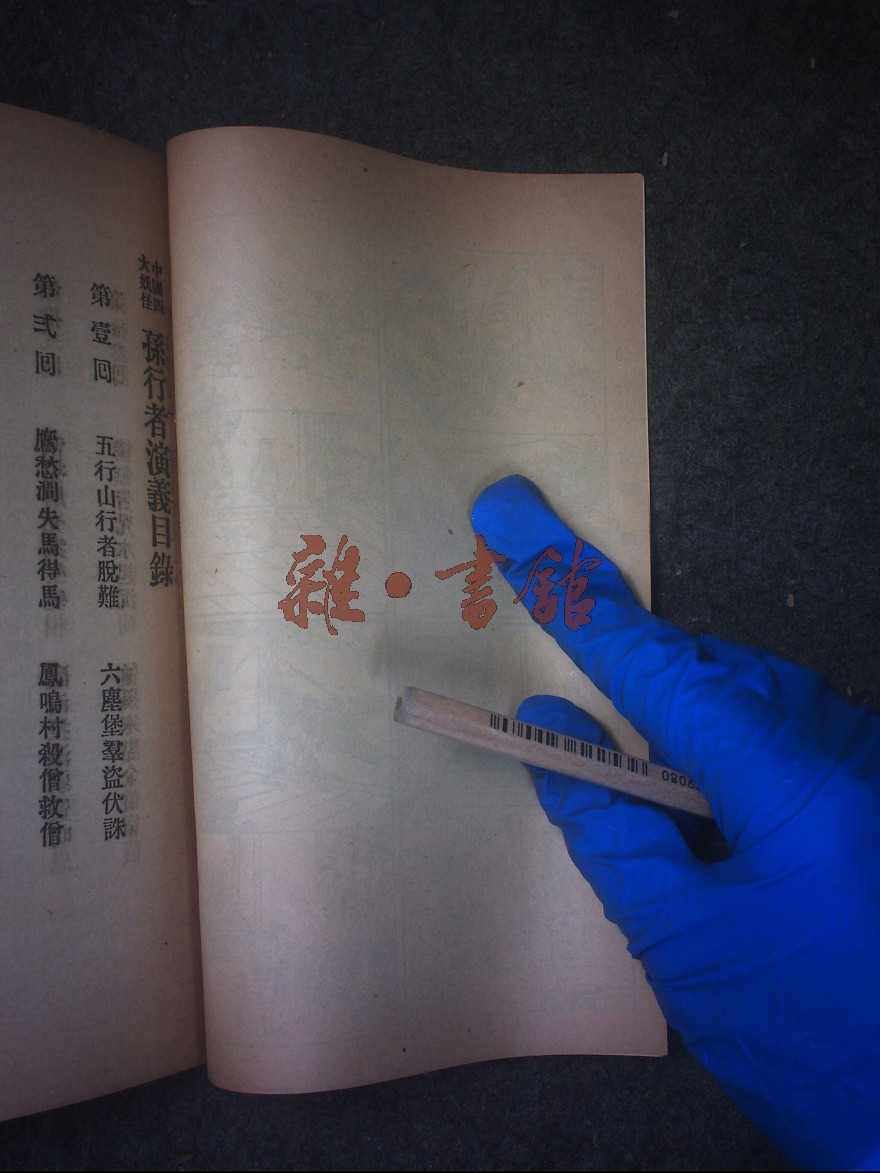 中國四
大妖怪
孫行者演義目錄
第壹回 五行山行者脫難 六塵堡羣盜伏誅
第弍回 鷹愁澗失馬得馬 鳳鳴村殺僧救僧
雜·書館